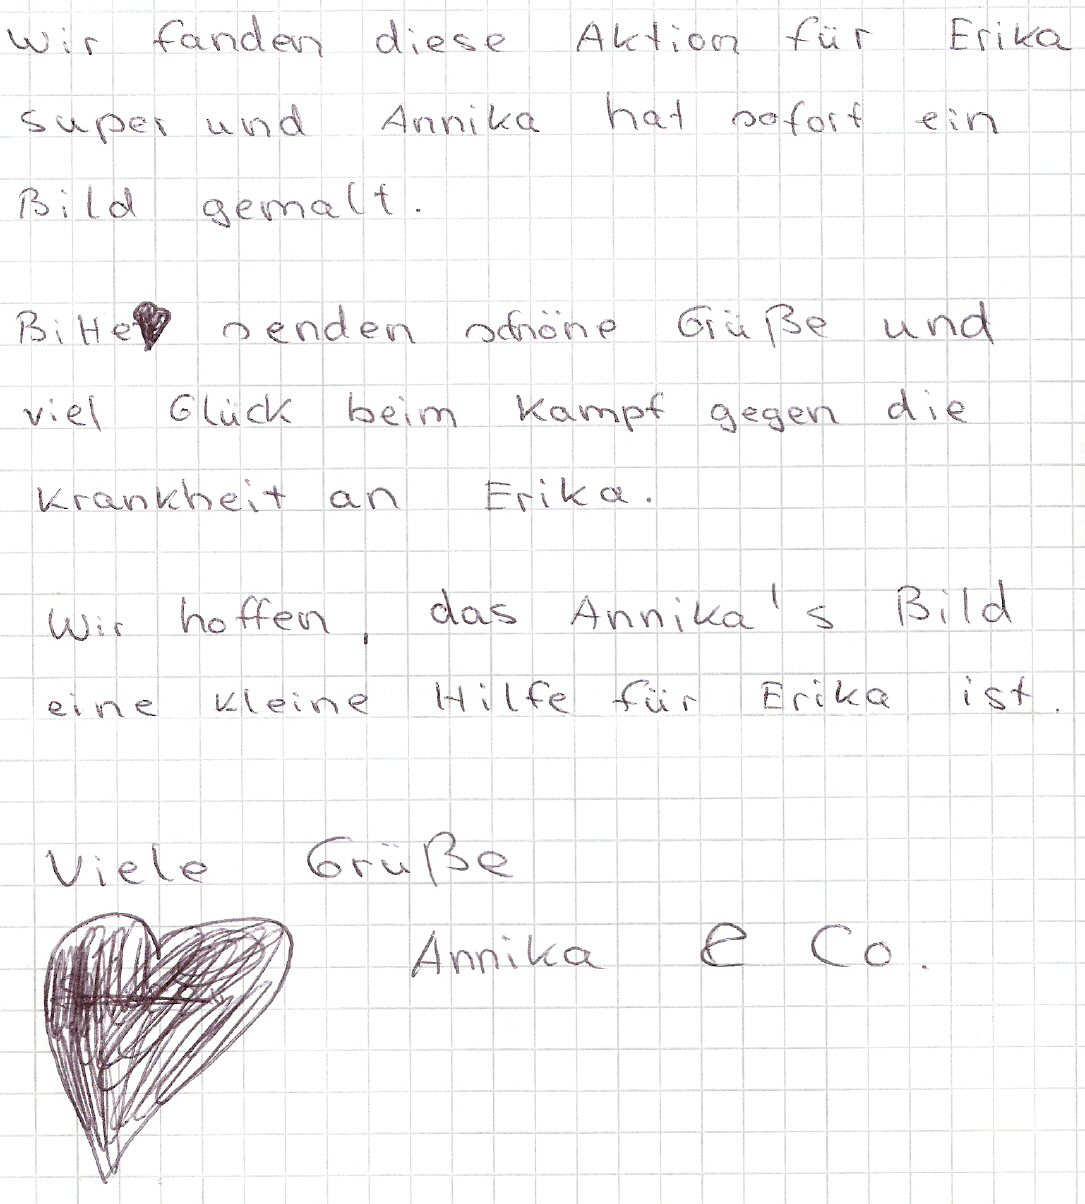 Wir fanden diese Aktion für Erika
super und Annika hat sofort ein
Bild gemalt.
Bitte senden schöne Grüße und
viel Glück beim Kampf gegen die
Krankheit an Erika.
Wir hoffen, das Annika's Bild
eine kleine Hilfe für Erika ist.
Viele Grüße
Annika & Co.